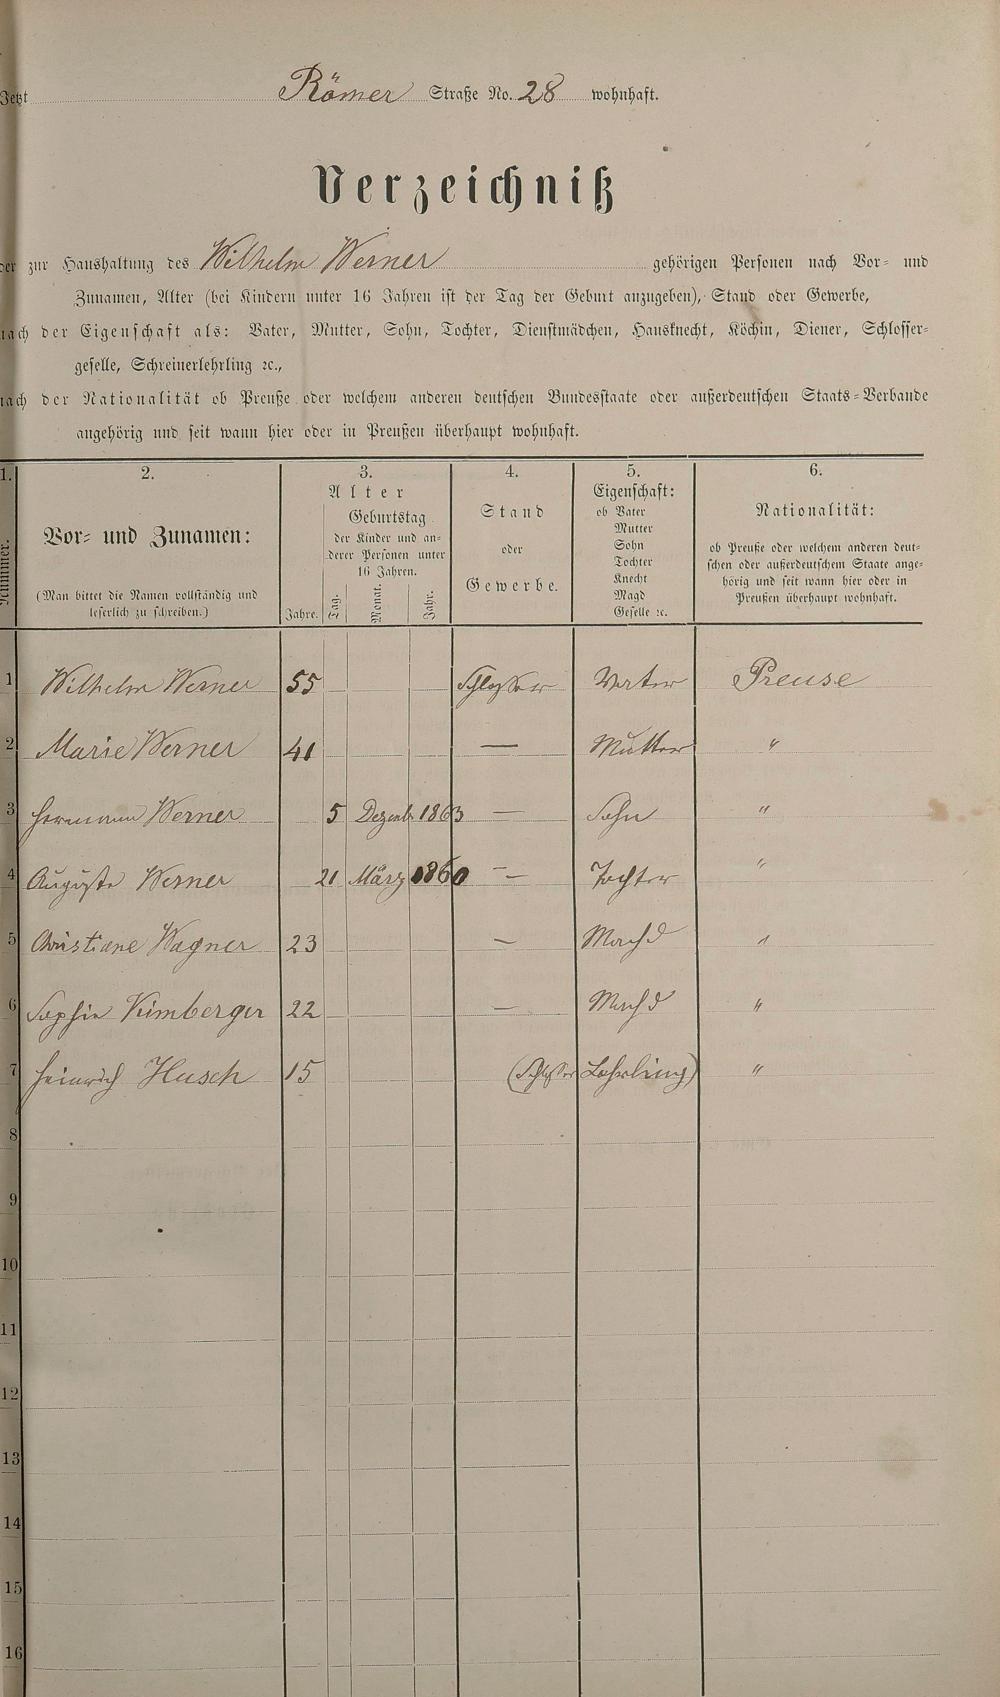 Jetzt Römer Straße No. 28 wohnhaft.
Verzeichniß
der zur Haushaltung des Wilhelm Werner gehörigen Personen nach Vor- und
Zunamen, Alter (bei Kindern unter 16 Jahren ist der Tag der Geburt anzugeben), Stand oder Gewerbe,
nach der Eigenschaft als: Vater, Mutter, Sohn, Tochter, Dienstmädchen, Hausknecht, Köchin, Diener, Schlosser-
geselle, Schreinerlehrling ꝛc.,
nach der Nationalität ob Preuße oder welchem anderen deutschen Bundesstaate oder außerdeutschen Staats-Verbande
angehörig und seit wann hier oder in Preußen überhaupt wohnhaft.
1. 2. 3. 4. 5. 6.
Nummer.
Vor- und Zunamen:
(Man bittet die Namen vollständig und
leserlich zu schreiben.)
Alter
Geburtstag
der Kinder und an-
derer Personen unter
16 Jahren.
Jahre. Tag. Monat. Jahr.
Stand
oder
Gewerbe.
Eigenschaft:
ob Vater
Mutter
Sohn
Tochter
Knecht
Magd
Geselle ꝛc.
Nationalität:
ob Preuße oder welchem anderen deut-
schen oder außerdeutschem Staate ange-
hörig und seit wann hier oder in
Preußen überhaupt wohnhaft.
1 Wilhelm Werner 55 Schlosser Vater Preuse
2 Marie Werner 41 — Mutter "
3 Hermann Werner 5 Dezemb. 1863 — Sohn "
4 Auguste Werner 21 März 1860 — Tochter "
5 Christiane Wagner 23 — Machd "
6 Sophie Kimberger 22 — Machd "
7 Heinrich Husch 15 (Schlosser Lehrling) "
8
9
10
11
12
13
14
15
16